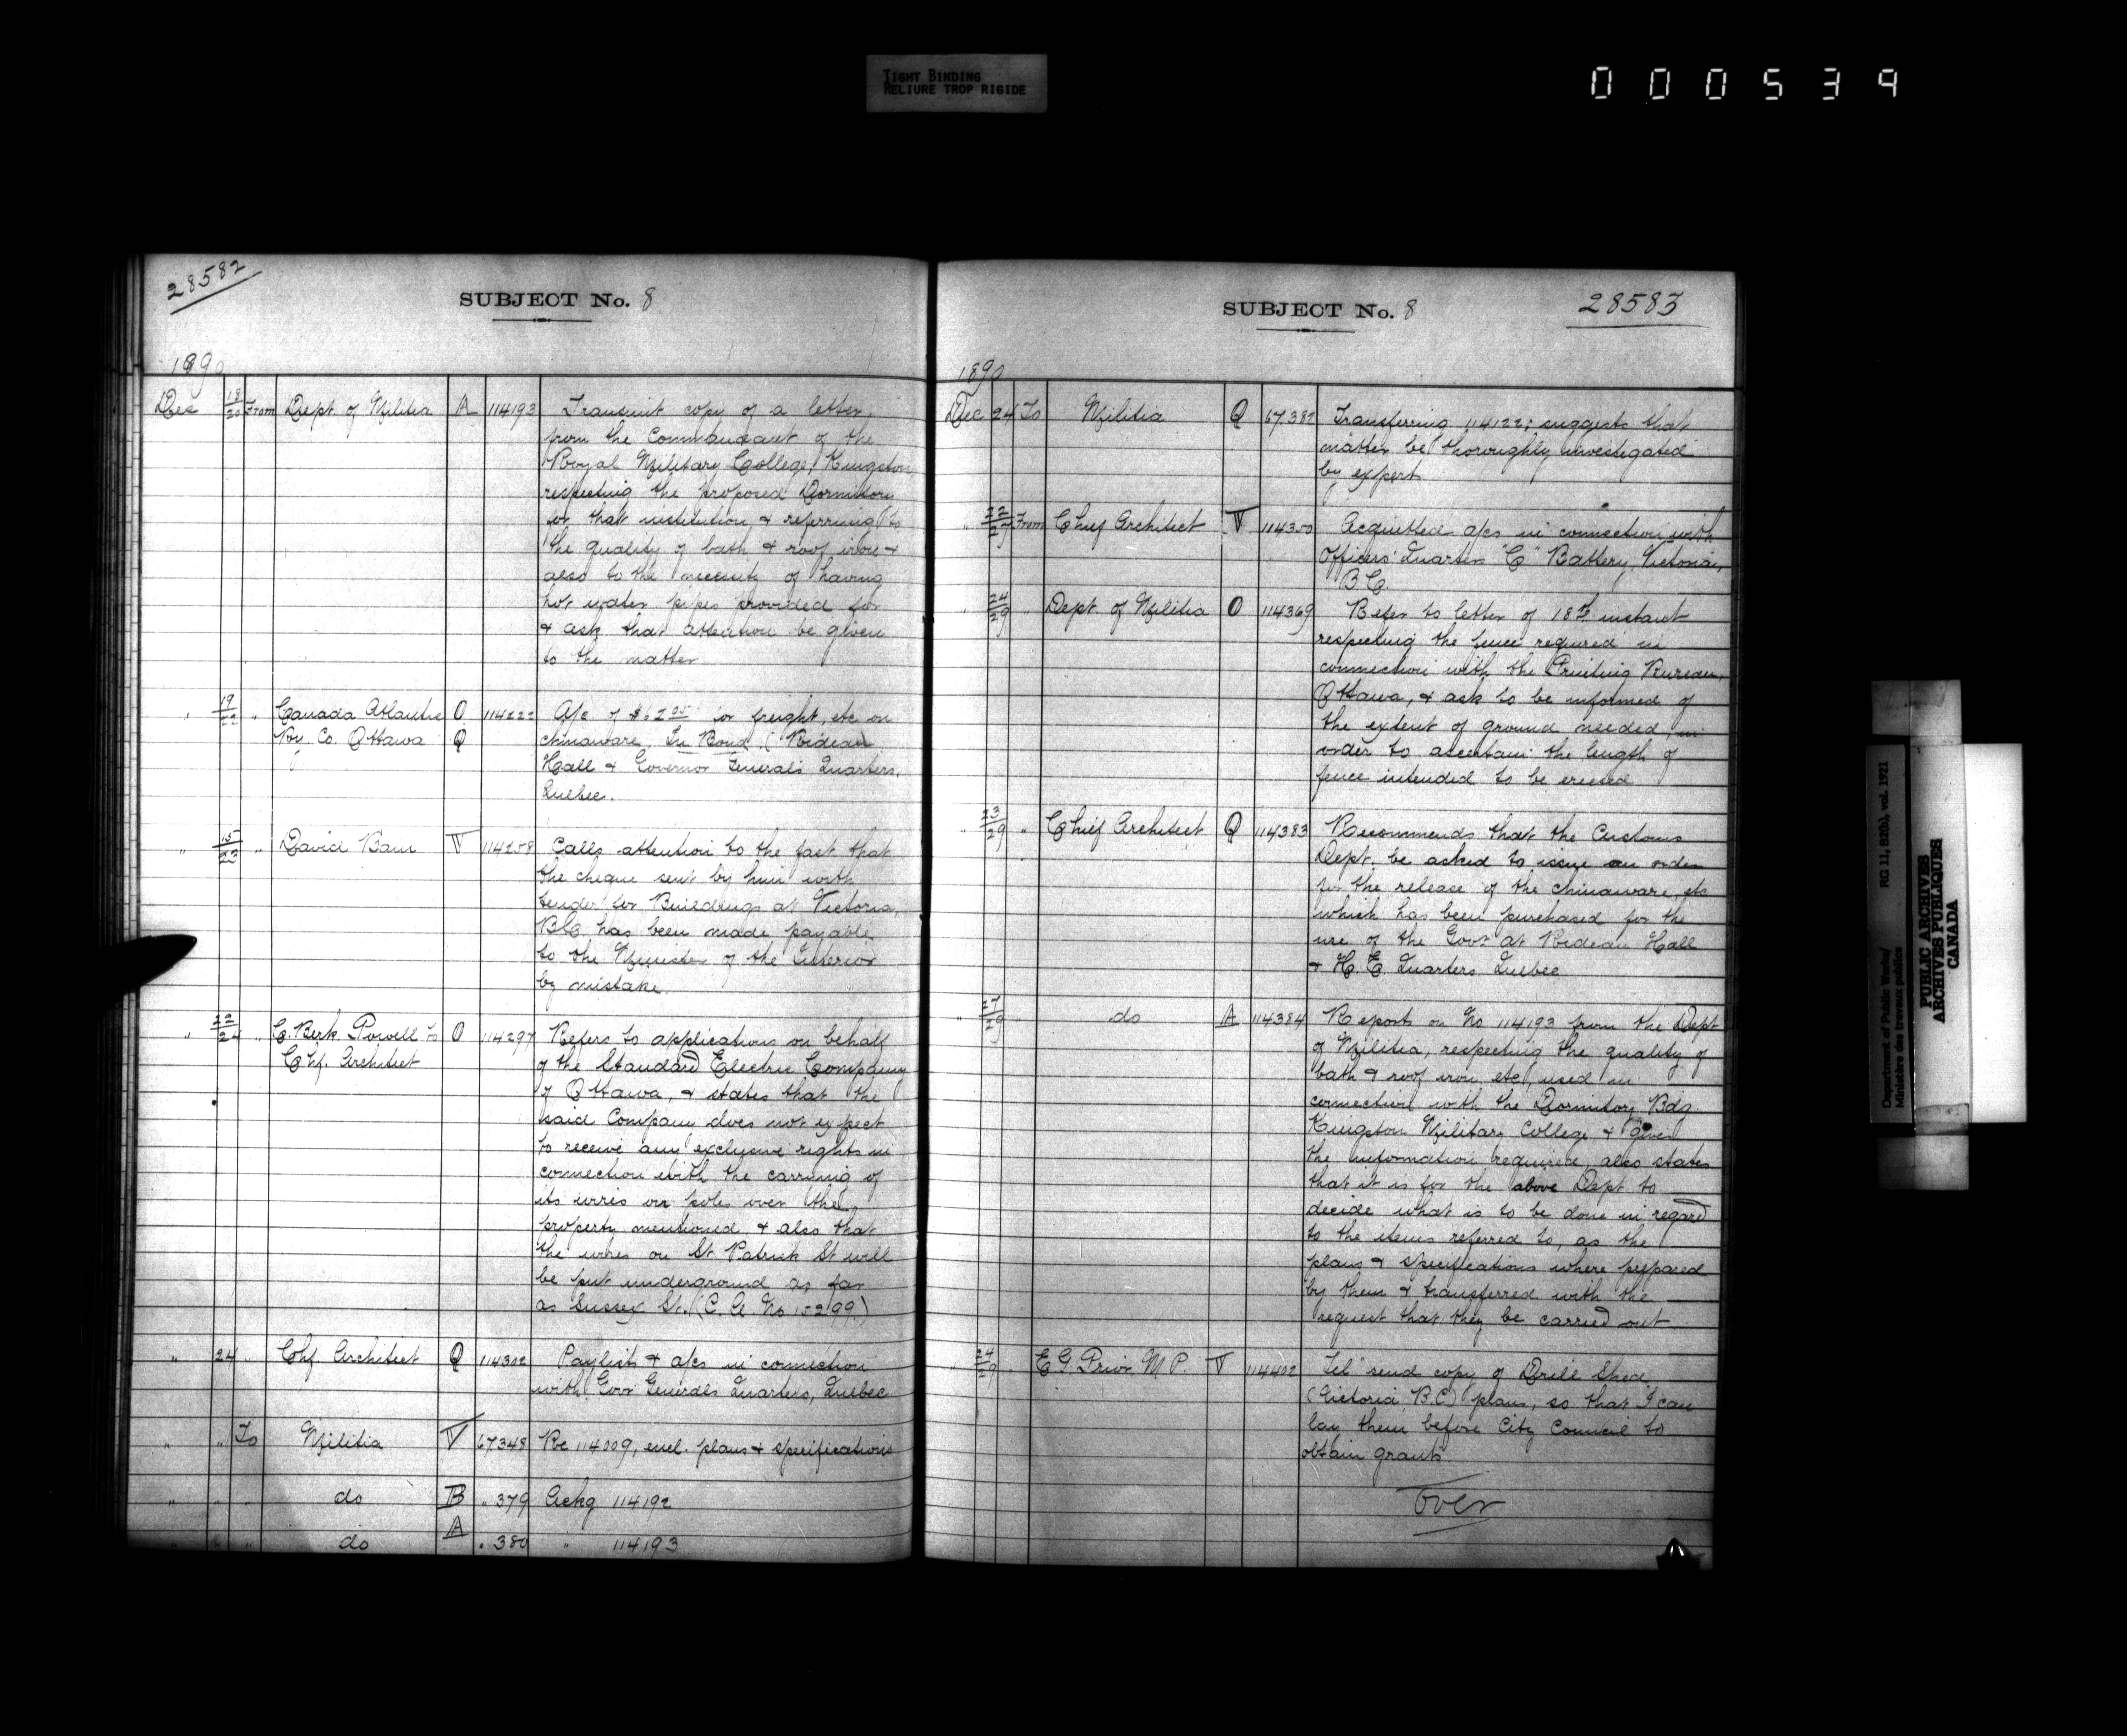 TIGHT BINDING
RELIURE TROP RIGIDE
000539
28582
SUBJECT No. 8
1890
Dec 18/20 From Dept. of Militia A 114193 Transmit copy of a letter
from the Commandant of the
Royal Military College, Kingston,
respecting the proposed Dormitory
for that institution & referring to
the quality of bath & roof iron &
also to the necessity of having
hot water pipes provided for
& ask that attention be given
to the matter
" 19/22 " Canada Atlantic O 114222 A/c of $62.05 for freight, etc on
Ry Co. Ottawa Q chinaware In Bond, (Rideau
Hall & Governor General's Quarters,
Quebec.
" 15/23 " David Bain V 114258 Calls attention to the fact that
the cheque sent by him with
tender for Buildings at Victoria,
B.C. has been made payable
to the Minister of the Interior
by mistake.
" 22/24 " C. Berk. Powell to O 114297 Refers to application on behalf
Chf. Architect of the Standard Electric Company
of Ottawa, & states that the
said Company does not expect
to receive any exclusive rights in
connection with the carrying of
its wires on poles over the
property mentioned & also that
the wires on St Patrick St will
be put underground as far
as Sussex St. (C. A. No 15299)
" 24 " Chf. Architect Q 114302 Paylists & a/cs in connection
with Govr General's Quarters, Quebec
" " To Militia V 67348 Re 114009, encl. plans & specifications
" " " do B " 379 Ackg 114192
" " " do A " 380 " 114193
SUBJECT No. 8
28583
1890
Dec 24 To Militia Q 67382 Transferring 114122; suggests that
matter be thoroughly investigated
by expert
" 22/27 From Chief Architect V 114350 Acquitted a/cs in connection with
Officers' Quarters "C" Battery, Victoria,
B.C.
" 24/29 " Dept. of Militia O 114369 Refer to letter of 18th instant
respecting the fence required in
connection with the Printing Bureau,
Ottawa, & ask to be informed of
the extent of ground needed, in
order to ascertain the length of
fence intended to be erected
" 23/29 " Chief Architect Q 114383 Recommends that the Customs
Dept. be asked to issue an order
for the release of the chinaware, etc
which has been purchased for the
use of the Govt at Rideau Hall
& H. E. Quarters Quebec
" 27/29 " do A 114384 Reports on No 114193 from the Dept
of Militia, respecting the quality of
bath & roof iron etc, used in
connection with the Dormitory Bdg
Kingston Military College & gives
the information required, also states
that it is for the above Dept to
decide what is to be done in regard
to the items referred to, as the
plans & specifications where prepared
by them & transferred with the
request that they be carried out
" 24/29 " E G. Prior M.P. V 114402 Tel "send copy of Drill Shed
(Victoria, B.C.) plans, so that I can
lay them before City Council to
obtain grants"
Over
Department of Public Works/
Ministère des travaux publics
RG 11, B2(b), vol. 1921
PUBLIC ARCHIVES
ARCHIVES PUBLIQUES
CANADA